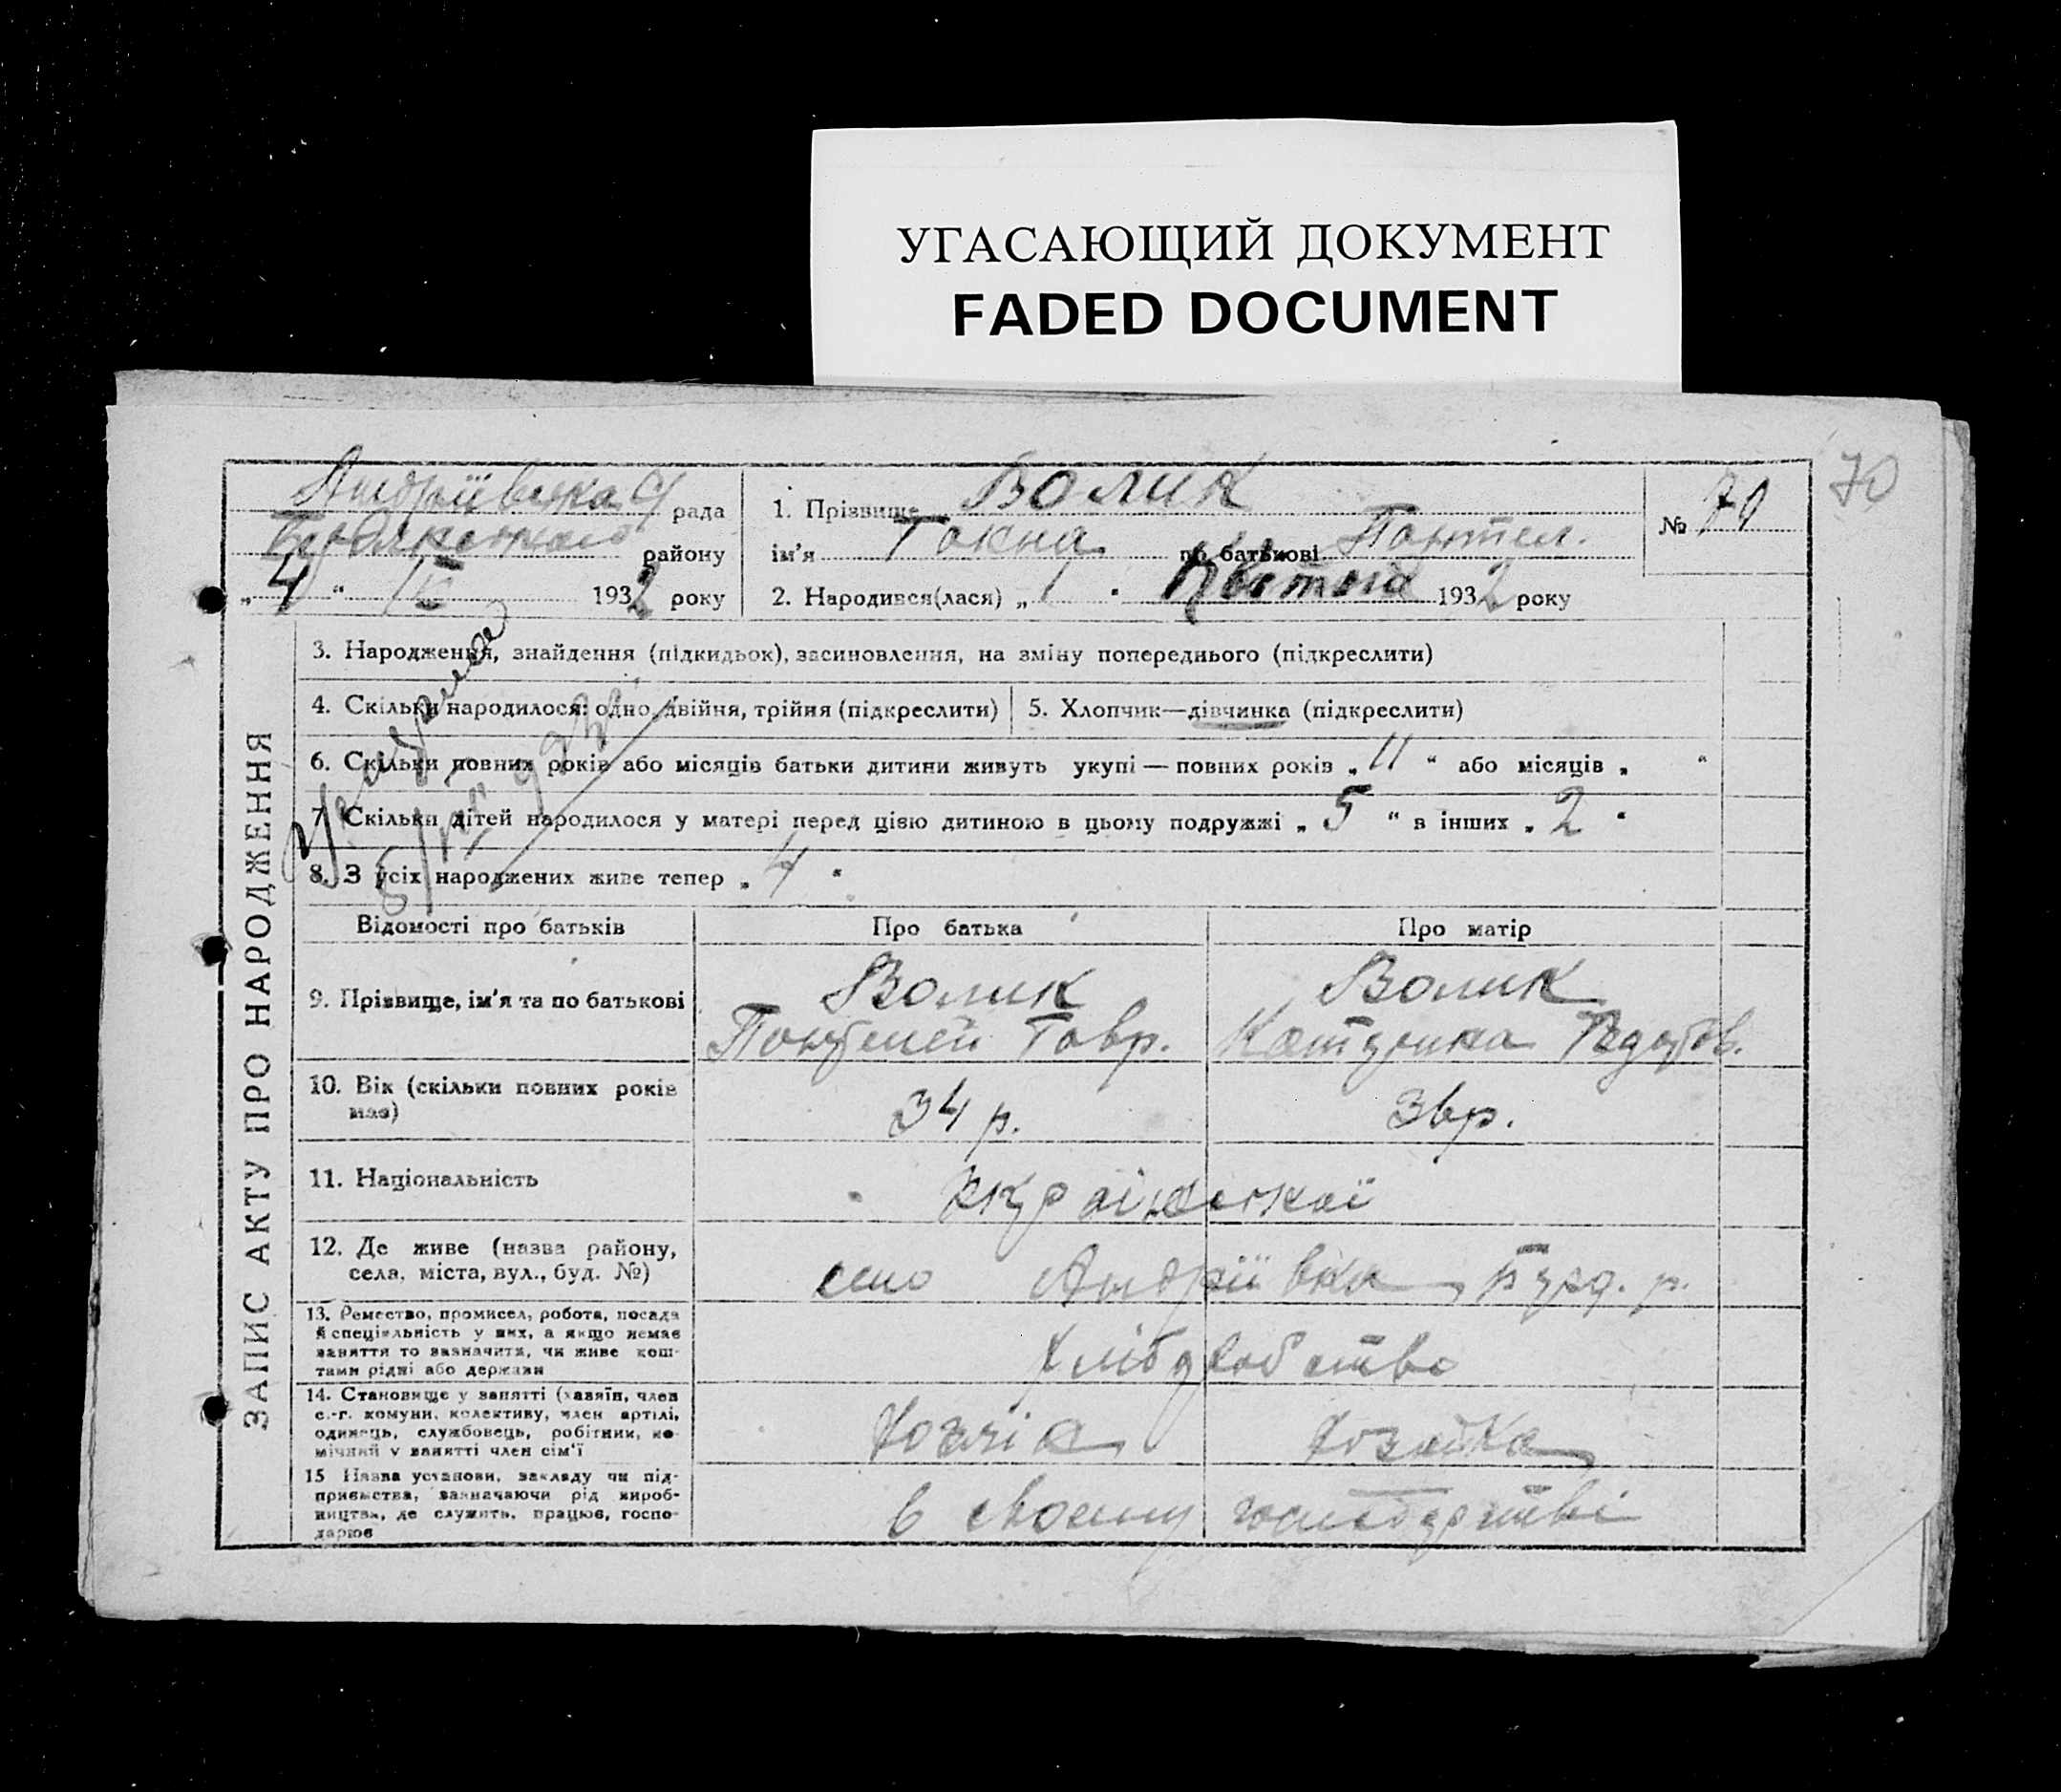 УГАСАЮЩИЙ ДОКУМЕНТ
FADED DOCUMENT
70
Андріївська с/рада
району
„4“ IV 1932 року
1. Прізвище Волик
ім'я по батькові Пантел.
2. Народився(лася) „1“ Квітня 1932 року
№ 70
ЗАПИС АКТУ ПРО НАРОДЖЕННЯ
3. Народження, знайдення (підкидьок), засиновлення, на зміну попереднього (підкреслити)
4. Скільки народилося: одно, двійня, трійня (підкреслити)
5. Хлопчик—дівчинка (підкреслити)
6. Скільки повних років або місяців батьки дитини живуть укупі — повних років „11“ або місяців „ “
7. Скільки дітей народилося у матері перед цією дитиною в цьому подружжі „5“ в інших „2“
8. З усіх народжених живе тепер „4“
Відомості про батьків
Про батька
Про матір
9. Прізвище, ім'я та по батькові
Волик
Гавр.
Волик
10. Вік (скільки повних років має)
34 р.
36 р.
11. Національність
12. Де живе (назва району,
села, міста, вул., буд. №)
село Андріївка
13. Ремество, промисел, робота, посада
й спеціяльність у них, а якщо немає
заняття то зазначити, чи живе кош-
тами рідні або держави
14. Становище у занятті (хазяїн, член
с.-г. комуни, колективу, член артілі,
одинець, службовець, робітник, по-
мічний у занятті член сім'ї
хозяйка
15 Назва установи, закладу чи під-
приємства, зазначаючи рід вироб-
ництва, де служить, працює, госпо-
дарює
в своєму господарстві